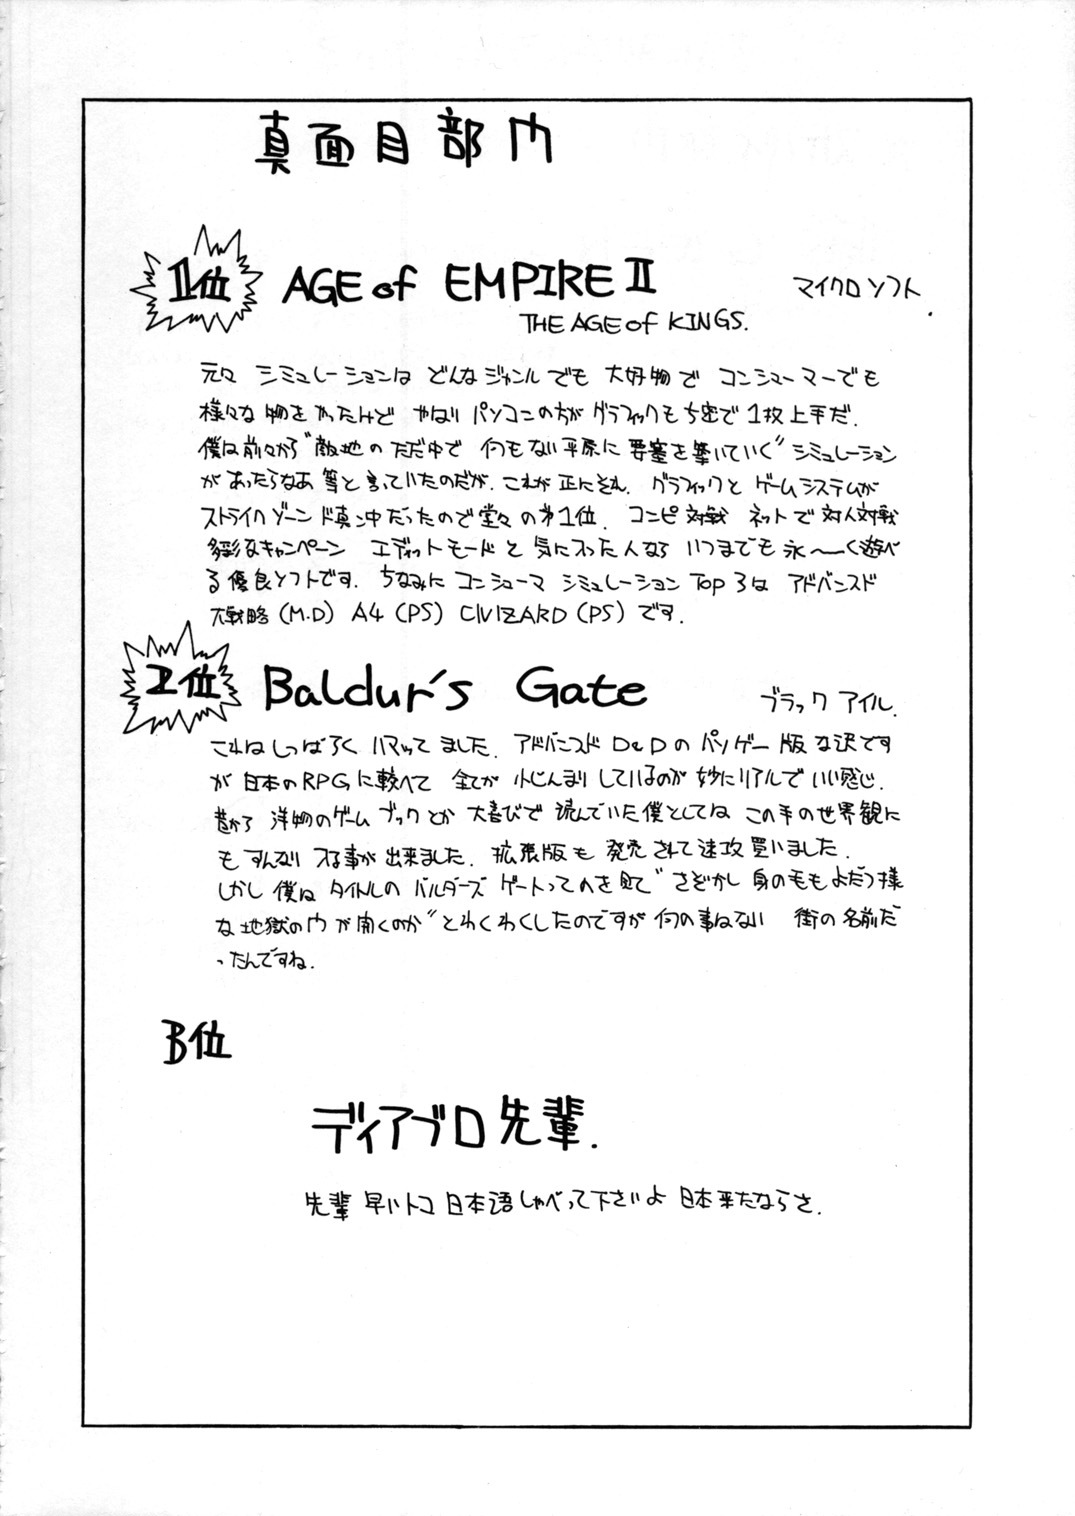 真面目部門
1位 AGE of EMPIRE II マイクロソフト.
THE AGE of KINGS.
元々 シミュレーションは どんなジャンルでも 大好物で コンシューマーでも
様々な物をやったけど やはり パソコンの方が グラフィックもち密で 1枚上手だ.
僕は前々から“敵地のただ中で 何もない平原に 要塞を築いていく”シミュレーション
があったらなあ等と言っていたのだが. これが正にそれ. グラフィックと ゲームシステムが
ストライクゾーン ド真ン中だったので堂々の第1位. コンピ対戦 ネットで 対人対戦
多彩なキャンペーン エディットモードと 気に入った人なら いつまでも永〜く遊べ
る優良ソフトです. ちなみに コンシューマ シミュレーション TOP 3は アドバンスド
大戦略(M.D) A4 (PS) CIVIZARD (PS) です.
2位 Baldur's Gate ブラック アイル.
これはしっばらく ハマッてました. アドバンスド D&Dの パソゲー版な訳です
が 日本のRPGに較べて 全てが 小じんまりしているのが 妙にリアルで いい感じ.
昔から 洋物のゲームブックとか 大喜びで 読んでいた僕としては この手の世界観に
もすんなり 入る事が出来ました. 拡張版も 発売されて速攻買いました.
しかし 僕は タイトルの バルダーズ ゲートってのを見て“さぞかし 身の毛もよだつ様
な 地獄の門が 開くのか”とわくわくしたのですが 何の事はない 街の名前だ
ったんですね.
B位
ディアブロ先輩.
先輩 早いトコ 日本語しゃべって下さいよ 日本来たならさ.